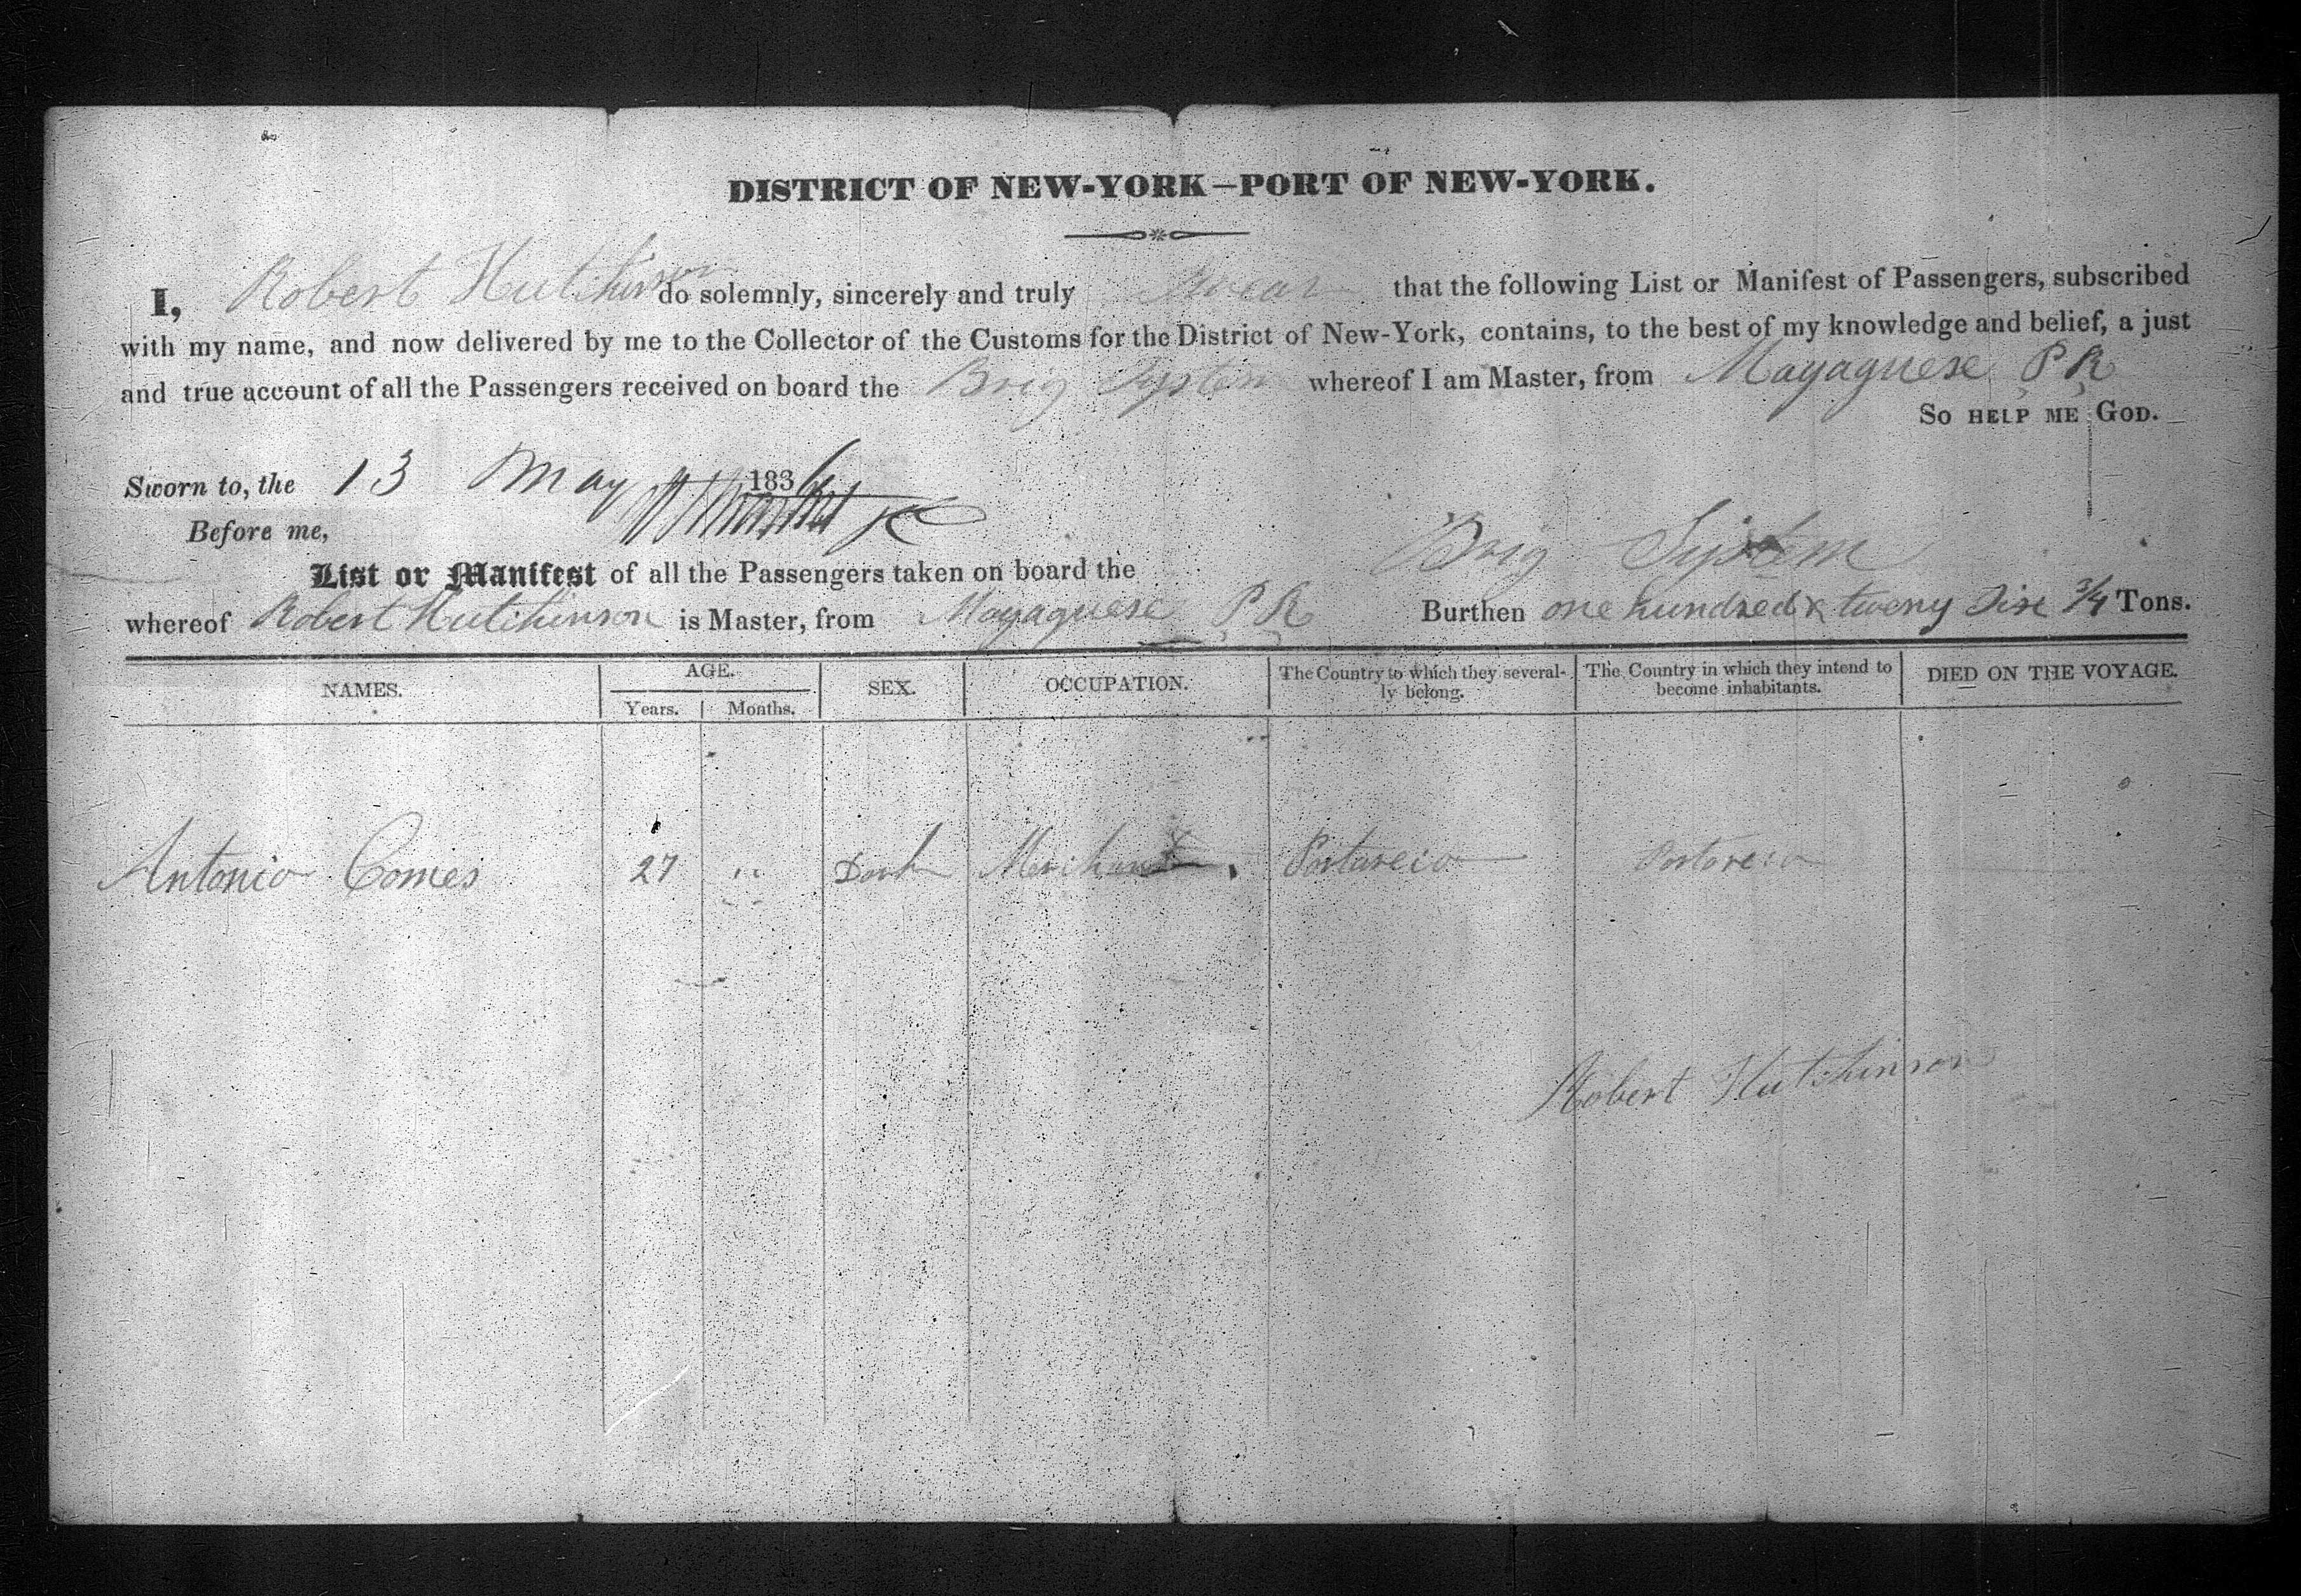 DISTRICT OF NEW-YORK—PORT OF NEW-YORK.
I, Robert Hutchinson do solemnly, sincerely and truly swear that the following List or Manifest of Passengers, subscribed
with my name, and now delivered by me to the Collector of the Customs for the District of New-York, contains, to the best of my knowledge and belief, a just
and true account of all the Passengers received on board the Brig System whereof I am Master, from Mayaguese P R
So HELP ME GOD.
Sworn to, the 13 May 1836
Before me,
Brig System
List or Manifest of all the Passengers taken on board the
whereof Robert Hutchinson is Master, from Mayaguese P R Burthen one hundred & twenty Six 3/4 Tons.
NAMES. AGE. Years. Months. SEX. OCCUPATION. The Country to which they several-ly belong. The Country in which they intend to become inhabitants. DIED ON THE VOYAGE.
Antonio Comes 27 " Merchant Portoreico Portoreico
Robert Hutchinson